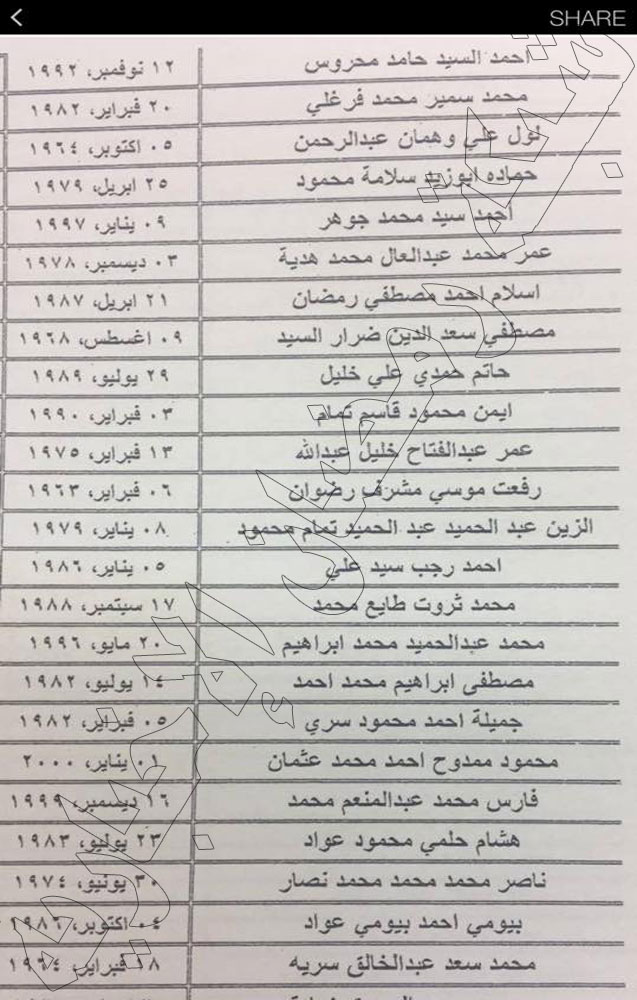 SHARE
احمد السيد حامد محروس ١٢ نوفمبر، ١٩٩٢
محمد سمير محمد فرغلي ٢٠ فبراير، ١٩٨٢
لول علي وهمان عبدالرحمن ٠٥ اكتوبر، ١٩٦٤
حماده ابوزيد سلامة محمود ٢٥ ابريل، ١٩٧٩
احمد سيد محمد جوهر ٠٩ يناير، ١٩٩٧
عمر محمد عبدالعال محمد هدية ٠٣ ديسمبر، ١٩٧٨
اسلام احمد مصطفي رمضان ٢١ ابريل، ١٩٨٧
مصطفي سعد الدين ضرار السيد ٠٩ اغسطس، ١٩٦٨
حاتم حمدي علي خليل ٢٩ يوليو، ١٩٨٩
ايمن محمود قاسم تمام ٠٣ فبراير، ١٩٩٠
عمر عبدالفتاح خليل عبدالله ١٣ فبراير، ١٩٧٥
رفعت موسي مشرف رضوان ٠٦ فبراير، ١٩٦٣
الزين عبد الحميد عبد الحميد تمام محمود ٠٨ يناير، ١٩٧٩
احمد رجب سيد علي ٠٥ يناير، ١٩٨٦
محمد ثروت طايع محمد ١٧ سبتمبر، ١٩٨٨
محمد عبدالحميد محمد ابراهيم ٢٠ مايو، ١٩٩٦
مصطفى ابراهيم محمد احمد ١٤ يوليو، ١٩٨٢
جميلة احمد محمود سري ٠٥ فبراير، ١٩٨٢
محمود ممدوح احمد محمد عثمان ٠١ يناير، ٢٠٠٠
فارس محمد عبدالمنعم محمد ١٦ ديسمبر، ١٩٩٩
هشام حلمي محمود عواد ٢٣ يوليو، ١٩٨٣
ناصر محمد محمد محمد نصار ٣٠ يونيو، ١٩٧٤
بيومي احمد بيومي عواد ٠٤ اكتوبر، ١٩٨٦
محمد سعد عبدالخالق سريه ١٨ فبراير، ١٩٦٤